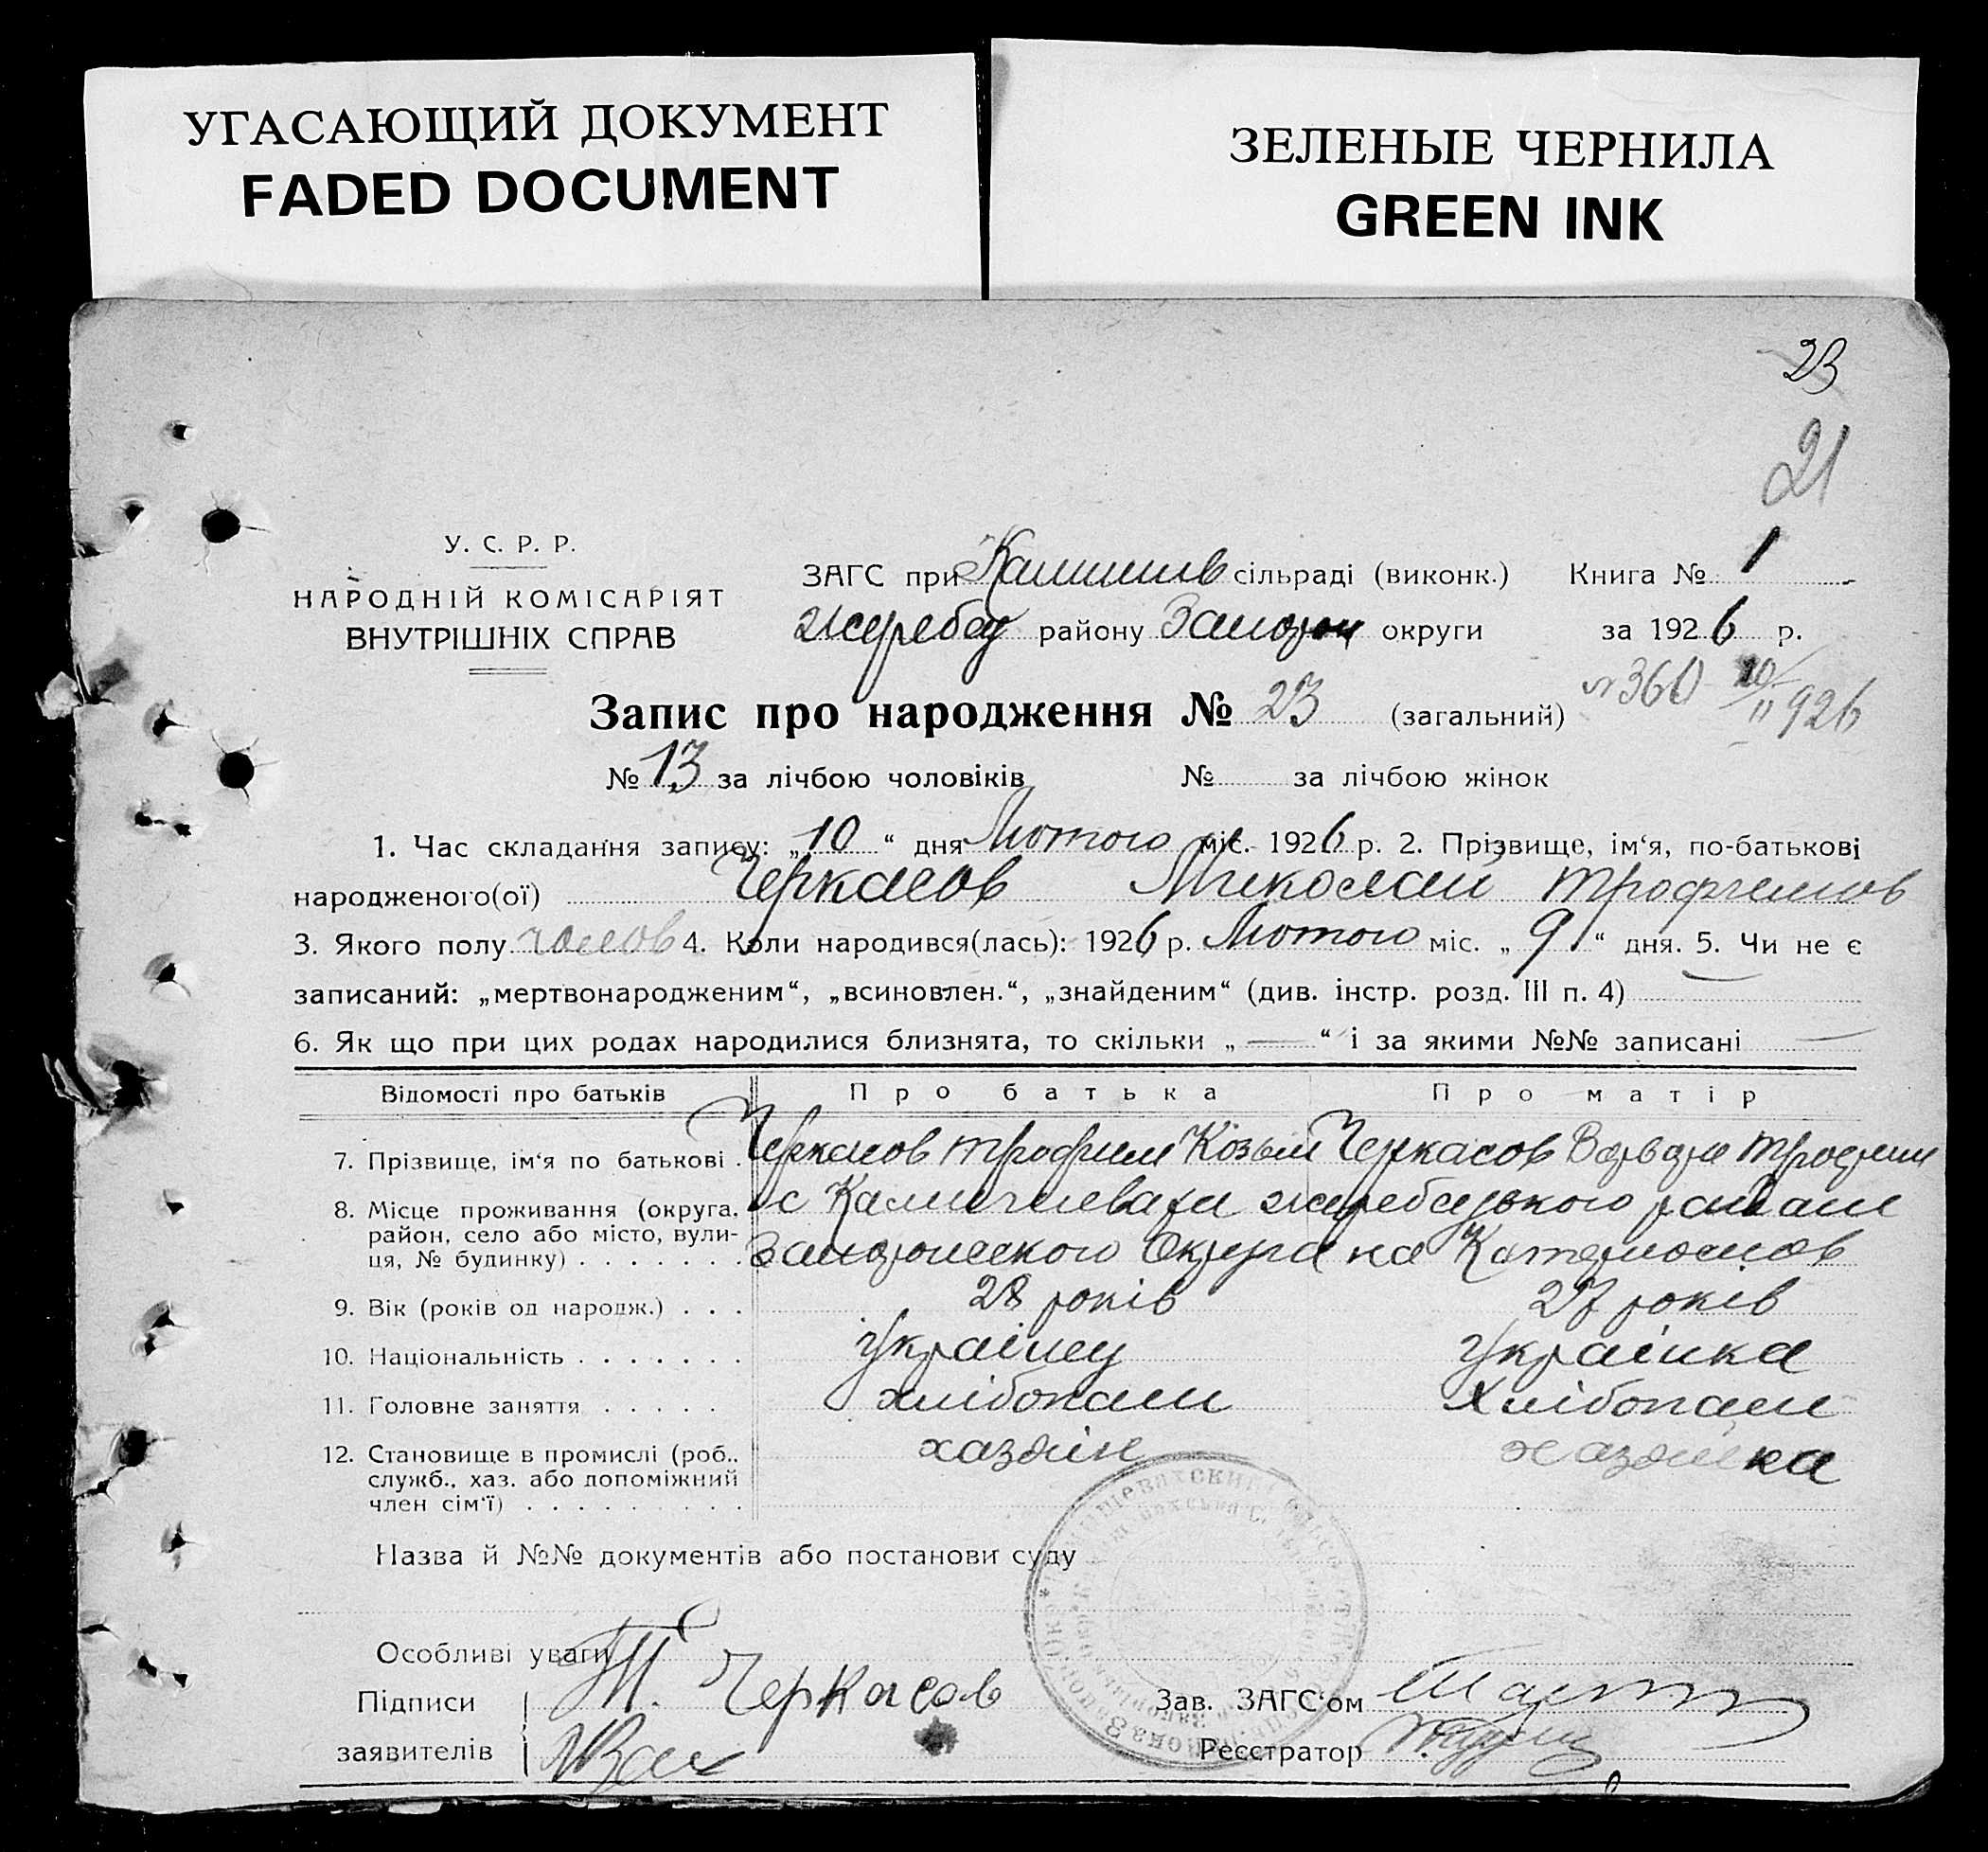 УГАСАЮЩИЙ ДОКУМЕНТ
FADED DOCUMENT
ЗЕЛЕНЫЕ ЧЕРНИЛА
GREEN INK
23
21
У. С. Р. Р.
НАРОДНІЙ КОМІСАРІЯТ
ВНУТРІШНІХ СПРАВ
ЗАГС при сільраді (виконк.) Книга № 1
Жеребец району Запорож округи за 1926 р.
№360 10/II 926
Запис про народження № 23 (загальний)
№ 13 за лічбою чоловіків № за лічбою жінок
1. Час складання запису: „10“ дня Лютого міс. 1926 р. 2. Прізвище, ім‘я, по-батькові
народженого(ої) Черкасов Миколай Трофимов
3. Якого полу чолов 4. Коли народився(лась): 1926 р. Лютого міс. „9“ дня. 5. Чи не є
записаний: „мертвонародженим“, „всиновлен.“, „знайденим“ (див. інстр. розд. III п. 4) —
6. Як що при цих родах народилися близнята, то скільки „—“ і за якими №№ записані —
Відомості про батьків Про батька Про матір
7. Прізвище, ім‘я по батькові . Черкасов Трофим Козьм Черкасов Варвара Трофим
8. Місце проживання (округа, район, село або місто, вулиця, № будинку) . . . . . . .
с Камишеваха жеребецького района
Запорожского Округа на Катеринослав
9. Вік (років од народж.) . . . 28 років 27 років
10. Національність . . . . . . . Українец Українка
11. Головне заняття . . . . . хлібопаш Хлібопаш
12. Становище в промислі (роб., хазяін хазяйка
служб., хаз. або допоміжний
член сім‘ї) . . . . . . . . .
Назва й №№ документів або постанови суду
Особливі уваги
Підписи Т. Черкасов Зав. ЗАГС‘ом
заявителів Реєстратор